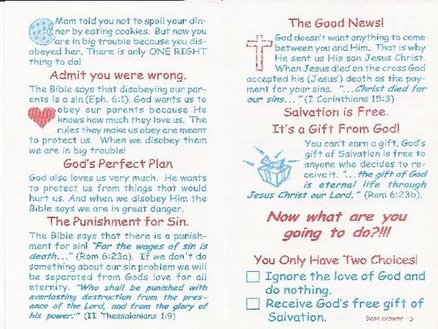 Mom told you not to spoil your din-
ner by eating cookies. But now you
are in big trouble because you dis-
obeyed her. There is only ONE RIGHT
thing to do!
Admit you were wrong.
The Bible says that disobeying our par-
ents is a sin (Eph. 6:1). God wants us to
obey our parents because He
knows how much they love us. The
rules they make us obey are meant
to protect us. When we disobey them
we are in big trouble!
God's Perfect Plan
God also loves us very much. He wants
to protect us from things that would
hurt us. And when we disobey Him the
Bible says we are in great danger.
The Punishment for Sin.
The Bible says that there is a punish-
ment for sin! "For the wages of sin is
death..." (Rom 6:23a). If we don't do
something about our sin problem we will
be separated from Gods love for all
eternity. "Who shall be punished with
everlasting destruction from the pres-
ence of the Lord, and from the glory of
his power." (II Thessalonians 1:9)
The Good News!
God doesn't want anything to come
between you and Him. That is why
He sent us His son Jesus Christ.
When Jesus died on the cross God
accepted his (Jesus') death as the pay-
ment for your sins. "...Christ died for
our sins..." (I Corinthians 15:3)
Salvation is Free.
It's a Gift From God!
You can't earn a gift. God's
gift of Salvation is free to
anyone who decides to re-
ceive it. "...the gift of God
is eternal life through
Jesus Christ our Lord." (Rom 6:23b).
Now what are you
going to do?!!!
You Only Have Two Choices!
Ignore the love of God and
do nothing.
Receive God's free gift of
Salvation.